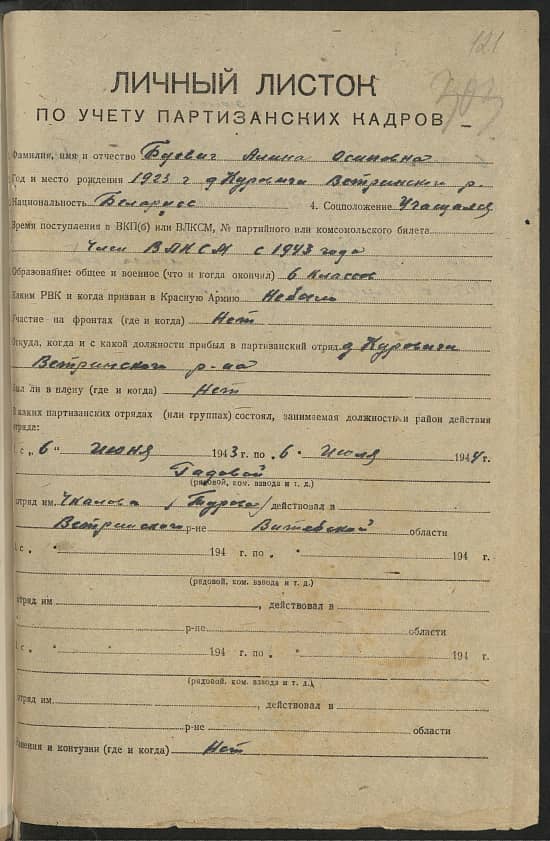 121
303
ЛИЧНЫЙ ЛИСТОК
ПО УЧЕТУ ПАРТИЗАНСКИХ КАДРОВ
Фамилия, имя и отчество Буевич Алина Осиповна
Год и место рождения 1923 г д Куровичи Ветринский р.
Национальность Беларусс 4. Соцположение Учащаяся
Время поступления в ВКП(б) или ВЛКСМ, № партийного или комсомольского билета
Член ВЛКСМ с 1943 года
Образование: общее и военное (что и когда окончил) 6 классов
Каким РВК и когда призван в Красную Армию Небыло
Участие на фронтах (где и когда) Нет
Откуда, когда и с какой должности прибыл в партизанский отряд д Куровичи
Ветринского р-на
Был ли в плену (где и когда) Нет
В каких партизанских отрядах (или группах) состоял, занимаемая должность и район действия
отряда:
1. с „ 6 " июня 1943 г. по „ 6 " июля 1944 г.
Радовой
(рядовой, ком. взвода и т. д.)
отряд им. Чкалова (Турова) действовал в
Ветринского р-не Витебской области
с „ " 194 г. по „ " 194 г.
(рядовой, ком. взвода и т. д.)
отряд им. , действовал в
р-не области
с „ " 194 г. по „ " 194 г.
(рядовой, ком. взвода и т. д.)
отряд им. , действовал в
р-не области
Ранения и контузии (где и когда) Нет